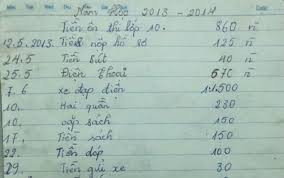 Năm Học 2013 - 2014
Tiền ôn thi lớp 10. 860 n
12.5.2013. Tiền nộp hồ sơ 125 n
24.5 Tiền bút 40 n
25.5 Điện thoại 570 n
7.6 xe đạp điện 11.500
10. Hai quần 230
10. cặp sách 150
17. Tiền sách 150
22. Tiền dép 100
29. Tiền gửi xe 30